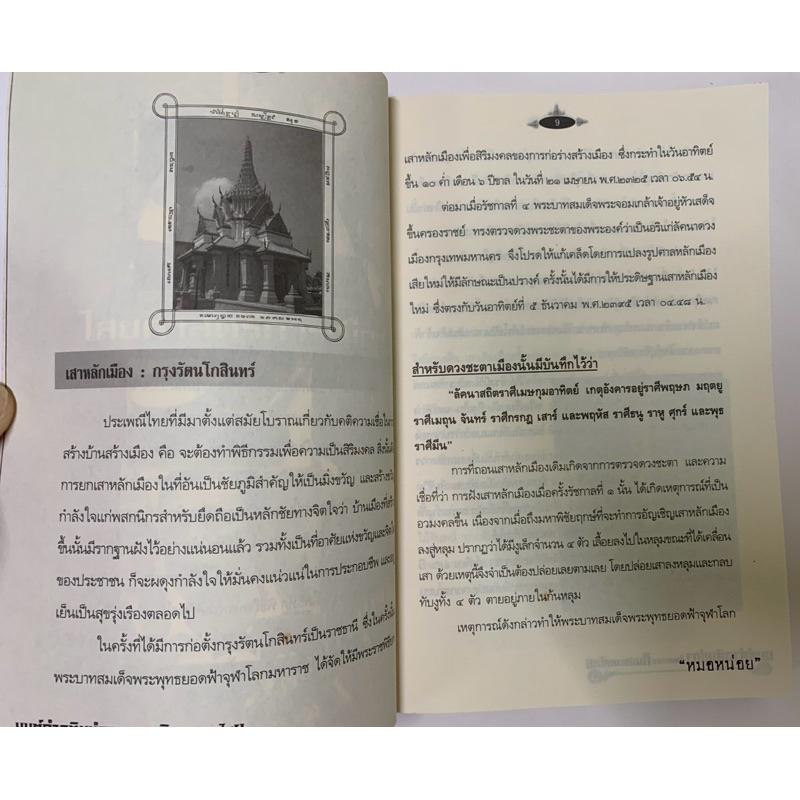 เสาหลักเมือง : กรุงรัตนโกสินทร์
ประเพณีไทยที่มีมาตั้งแต่สมัยโบราณเกี่ยวกับคติความเชื่อในการ
สร้างบ้านสร้างเมือง คือ จะต้องทำพิธีกรรมเพื่อความเป็นสิริมงคล สิ่งนั้นคือ
การยกเสาหลักเมืองในที่อันเป็นชัยภูมิสำคัญให้เป็นมิ่งขวัญ และสร้าง
กำลังใจแก่พสกนิกรสำหรับยึดถือเป็นหลักชัยทางจิตใจว่า บ้านเมืองที่
ขึ้นนั้นมีรากฐานฝังไว้อย่างแน่นอนแล้ว รวมทั้งเป็นที่อาศัยแห่งขวัญและจิตใจ
ของประชาชน ก็จะผดุงกำลังใจให้มั่นคงแน่วแน่ในการประกอบชีพ
เย็นเป็นสุขรุ่งเรืองตลอดไป
ในครั้งที่ได้มีการก่อตั้งกรุงรัตนโกสินทร์เป็นราชธานี ซึ่งในครั้งนั้น
พระบาทสมเด็จพระพุทธยอดฟ้าจุฬาโลกมหาราช ได้จัดให้มีพระราชพิธียก
9
เสาหลักเมืองเพื่อสิริมงคลของการก่อร่างสร้างเมือง ซึ่งกระทำในวันอาทิตย์
ขึ้น ๑๐ ค่ำ เดือน ๖ ปีขาล ในวันที่ ๒๑ เมษายน พ.ศ.๒๓๒๕ เวลา ๐๖.๕๔ น.
ต่อมาเมื่อรัชกาลที่ ๔ พระบาทสมเด็จพระจอมเกล้าเจ้าอยู่หัวเสด็จ
ขึ้นครองราชย์ ทรงตรวจดวงพระชะตาของพระองค์ว่าเป็นอริแก่ลัคนาดวง
เมืองกรุงเทพมหานคร จึงโปรดให้แก้เคล็ดโดยการแปลงรูปศาลหลักเมือง
เสียใหม่ให้มีลักษณะเป็นปรางค์ ครั้งนั้นได้มีการให้ประดิษฐานเสาหลักเมือง
ใหม่ ซึ่งตรงกับวันอาทิตย์ที่ ๕ ธันวาคม พ.ศ.๒๓๙๕ เวลา ๐๔.๔๘ น.
สำหรับดวงชะตาเมืองนั้นมีบันทึกไว้ว่า
"ลัคนาสถิตราศีเมษกุมอาทิตย์ เกตุอังคารอยู่ราศีพฤษภ มฤตยู
ราศีเมถุน จันทร์ ราศีกรกฎ เสาร์ และพฤหัส ราศีธนู ราหู ศุกร์ และพุธ
ราศีมีน"
การที่ถอนเสาหลักเมืองเดิมเกิดจากการตรวจดวงชะตา และความ
เชื่อที่ว่า การฝังเสาหลักเมืองเมื่อครั้งรัชกาลที่ ๑ นั้น ได้เกิดเหตุการณ์ที่เป็น
อวมงคลขึ้น เนื่องจากเมื่อถึงมหาพิชัยฤกษ์ที่จะทำการอัญเชิญเสาหลักเมือง
ลงสู่หลุม ปรากฏว่าได้มีงูเล็กจำนวน ๔ ตัว เลื้อยลงไปในหลุมขณะที่ได้เคลื่อน
เสา ด้วยเหตุนี้จึงจำเป็นต้องปล่อยเลยตามเลย โดยปล่อยเสาลงหลุมและกลบ
ทับงูทั้ง ๔ ตัว ตายอยู่ภายในก้นหลุม
เหตุการณ์ดังกล่าวทำให้พระบาทสมเด็จพระพุทธยอดฟ้าจุฬาโลก
"หมอหน่อย"